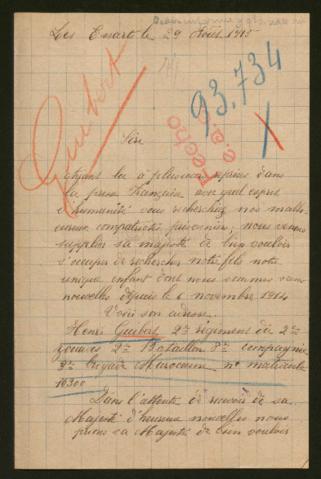 Les Essarts le 29 Août 1915
93.734
Guibert
Fecho
Sire
Ayant lu à plusieurs reprises dans
la presse Française avec quel esprit
d'humanité vous recherchez nos malh-
eureux compatriotes prisonniers; nous venons
supplier sa majesté de bien vouloir
s'occuper de rechercher notre fils notre
unique enfant dont nous sommes sans
nouvelles depuis le 6 novembre 1914
Voici son adresse
Henri Guibert 2me régiment de 2me
zouaves 2me Bataillon 8me compagnie
2me brigade Marocaine n° matricule
10300
Dans l'attente de recevoir de sa
Majesté d'heureuse nouvelles nous
prions sa Majesté de bien vouloir